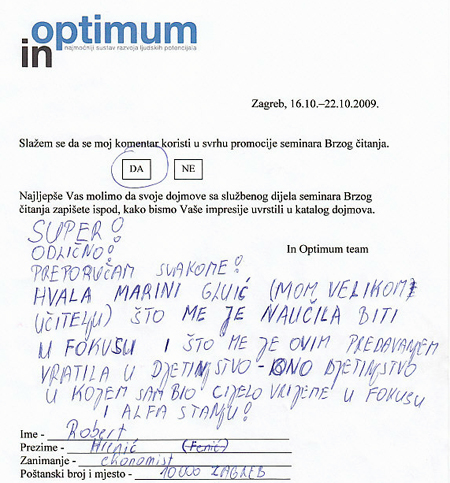 in optimum
najmoćniji sustav razvoja ljudskih potencijala
Zagreb, 16.10.–22.10.2009.
Slažem se da se moj komentar koristi u svrhu promocije seminara Brzog čitanja.
DA NE
Najljepše Vas molimo da svoje dojmove sa službenog dijela seminara Brzog
čitanja zapišete ispod, kako bismo Vaše impresije uvrstili u katalog dojmova.
SUPER!
ODLIČNO!
In Optimum team
PREPORUČAM SVAKOME!
HVALA MARINI (MOM VELIKOM
UČITELJU) ŠTO ME JE NAUČILA BITI
U FOKUSU I ŠTO ME JE OVIM PREDAVANJEM
VRATILA U DJETINJSTVO - ONO DJETINJSTVO
U KOJEM SAM BIO CIJELO VRIJEME U FOKUSU
I ALFA STANJU!
Ime - Robert
Prezime -
Zanimanje - ekonomist
Poštanski broj i mjesto - 10000 ZAGREB